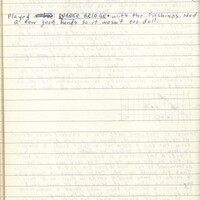 Played RUBBER BRIDGE with the Pilchings. Had
a few good hands so it wasn't too dull.